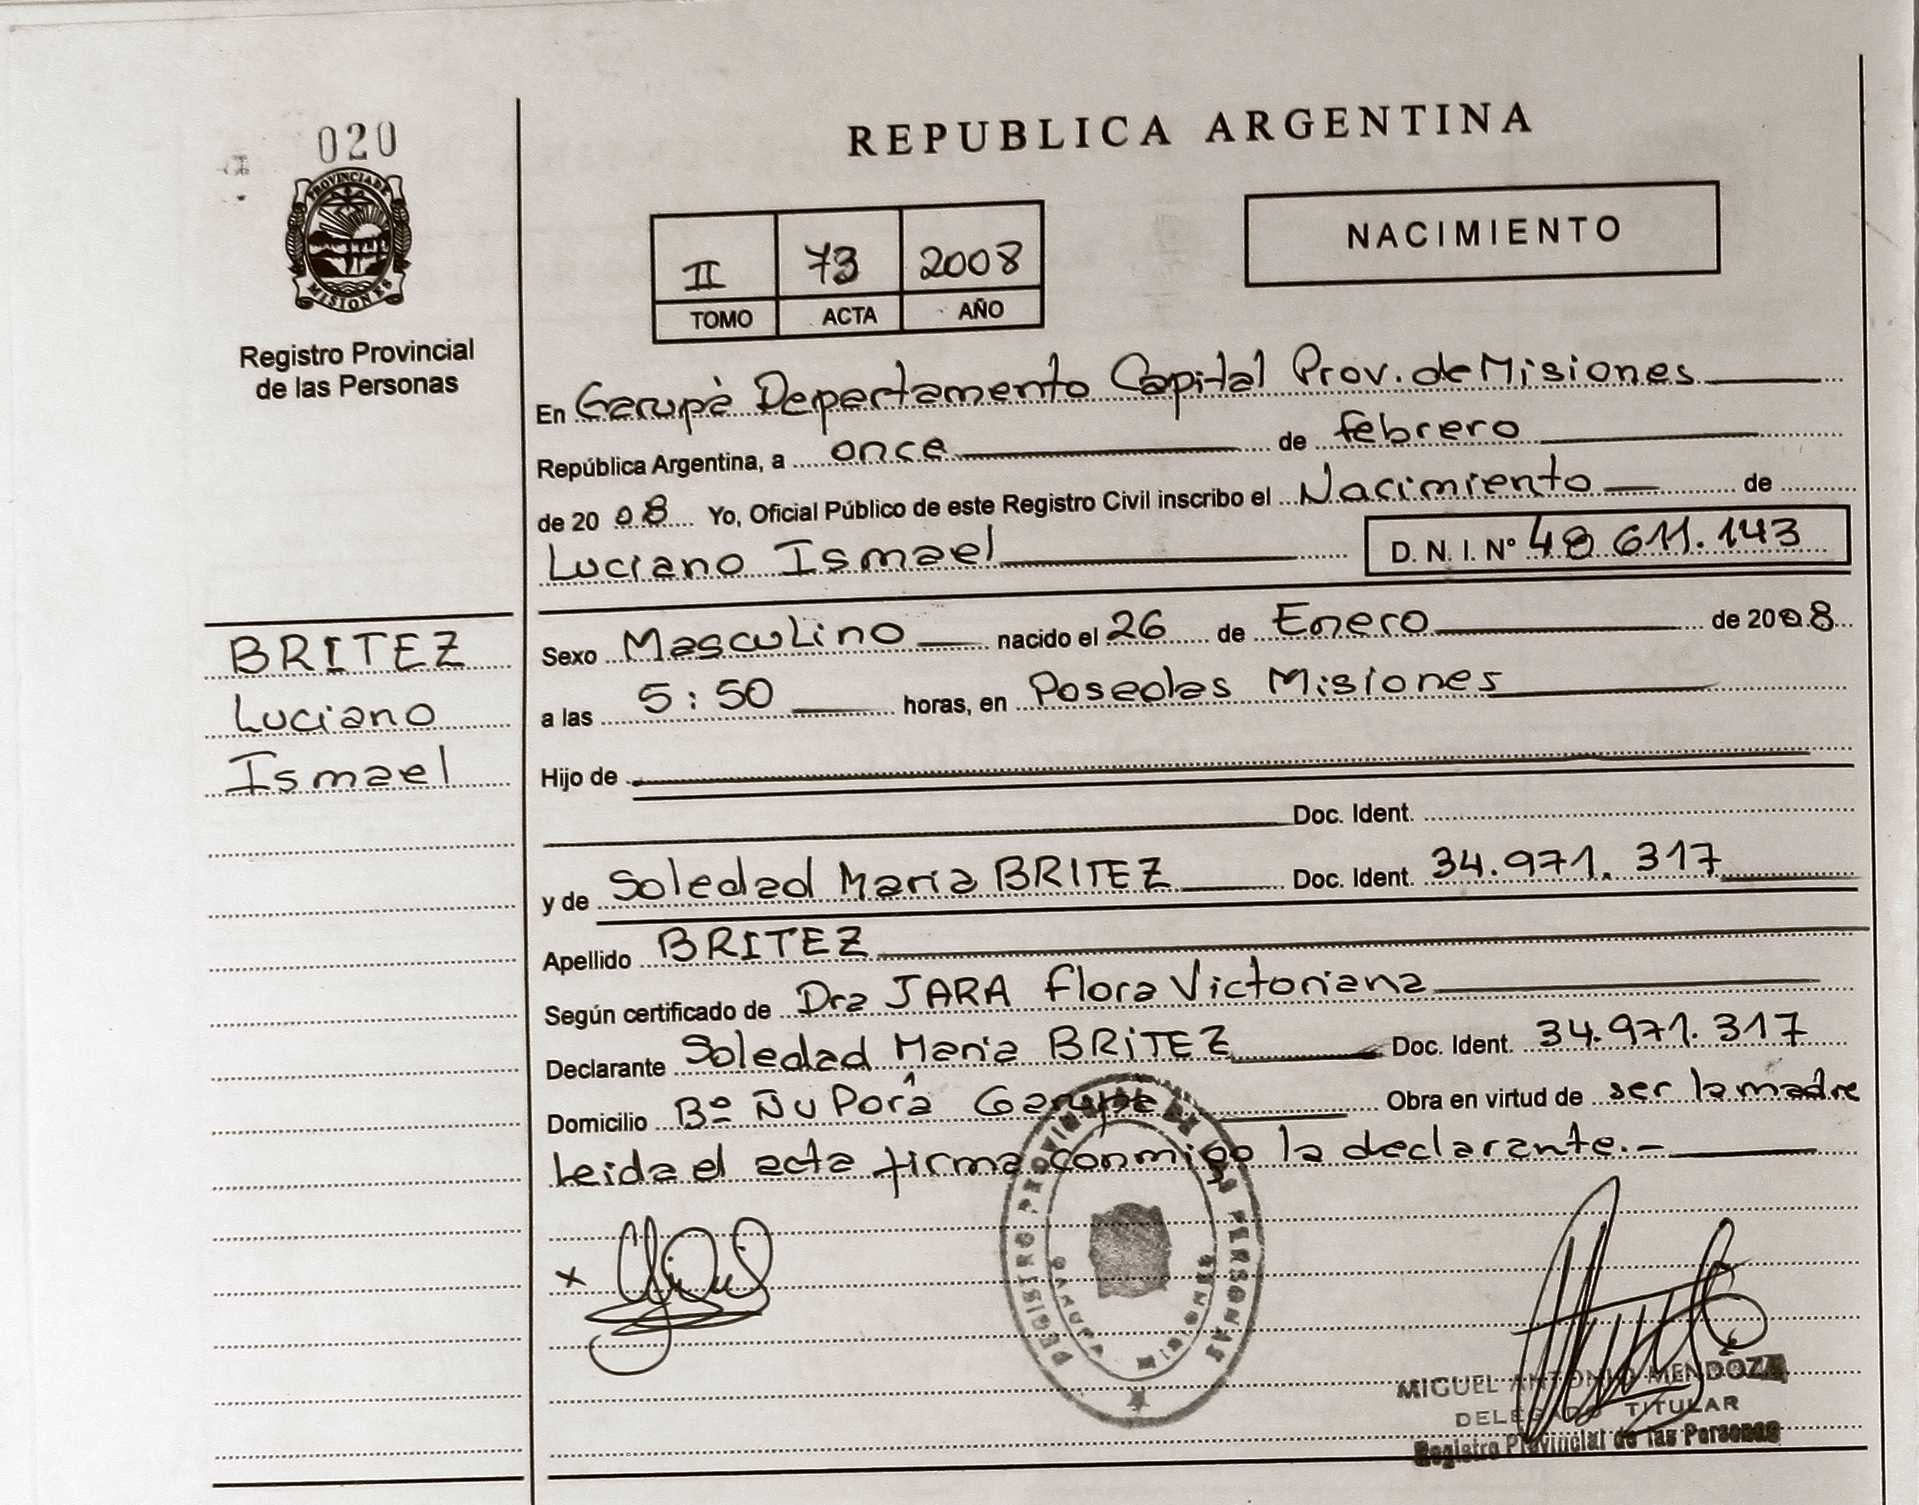 020
PROVINCIA DE
MISIONES
Registro Provincial
de las Personas
REPUBLICA ARGENTINA
II 73 2008
TOMO ACTA AÑO
NACIMIENTO
En Garupà Departamento Capital Prov. de Misiones
República Argentina, a once de febrero
de 2008 Yo, Oficial Público de este Registro Civil inscribo el Nacimiento de
Luciano Ismael D. N. I. N° 48 611.143
BRITEZ
Luciano
Ismael
Sexo Masculino nacido el 26 de Enero de 2008
a las 5:50 horas, en Posadas Misiones
Hijo de
Doc. Ident.
y de Soledad Maria BRITEZ Doc. Ident. 34.971.317
Apellido BRITEZ
Según certificado de Dra JARA Flora Victoriana
Declarante Soledad Maria BRITEZ Doc. Ident. 34.971.317
Domicilio Bº Ñu Porâ Garupà Obra en virtud de ser la madre
Leida el acta firma conmigo la declarante.-
x
REGISTRO PROVINCIAL DE LAS PERSONAS
GARUPA MISIONES
MIGUEL ANTONIO MENDOZA
DELEGADO TITULAR
Registro Provincial de las Personas